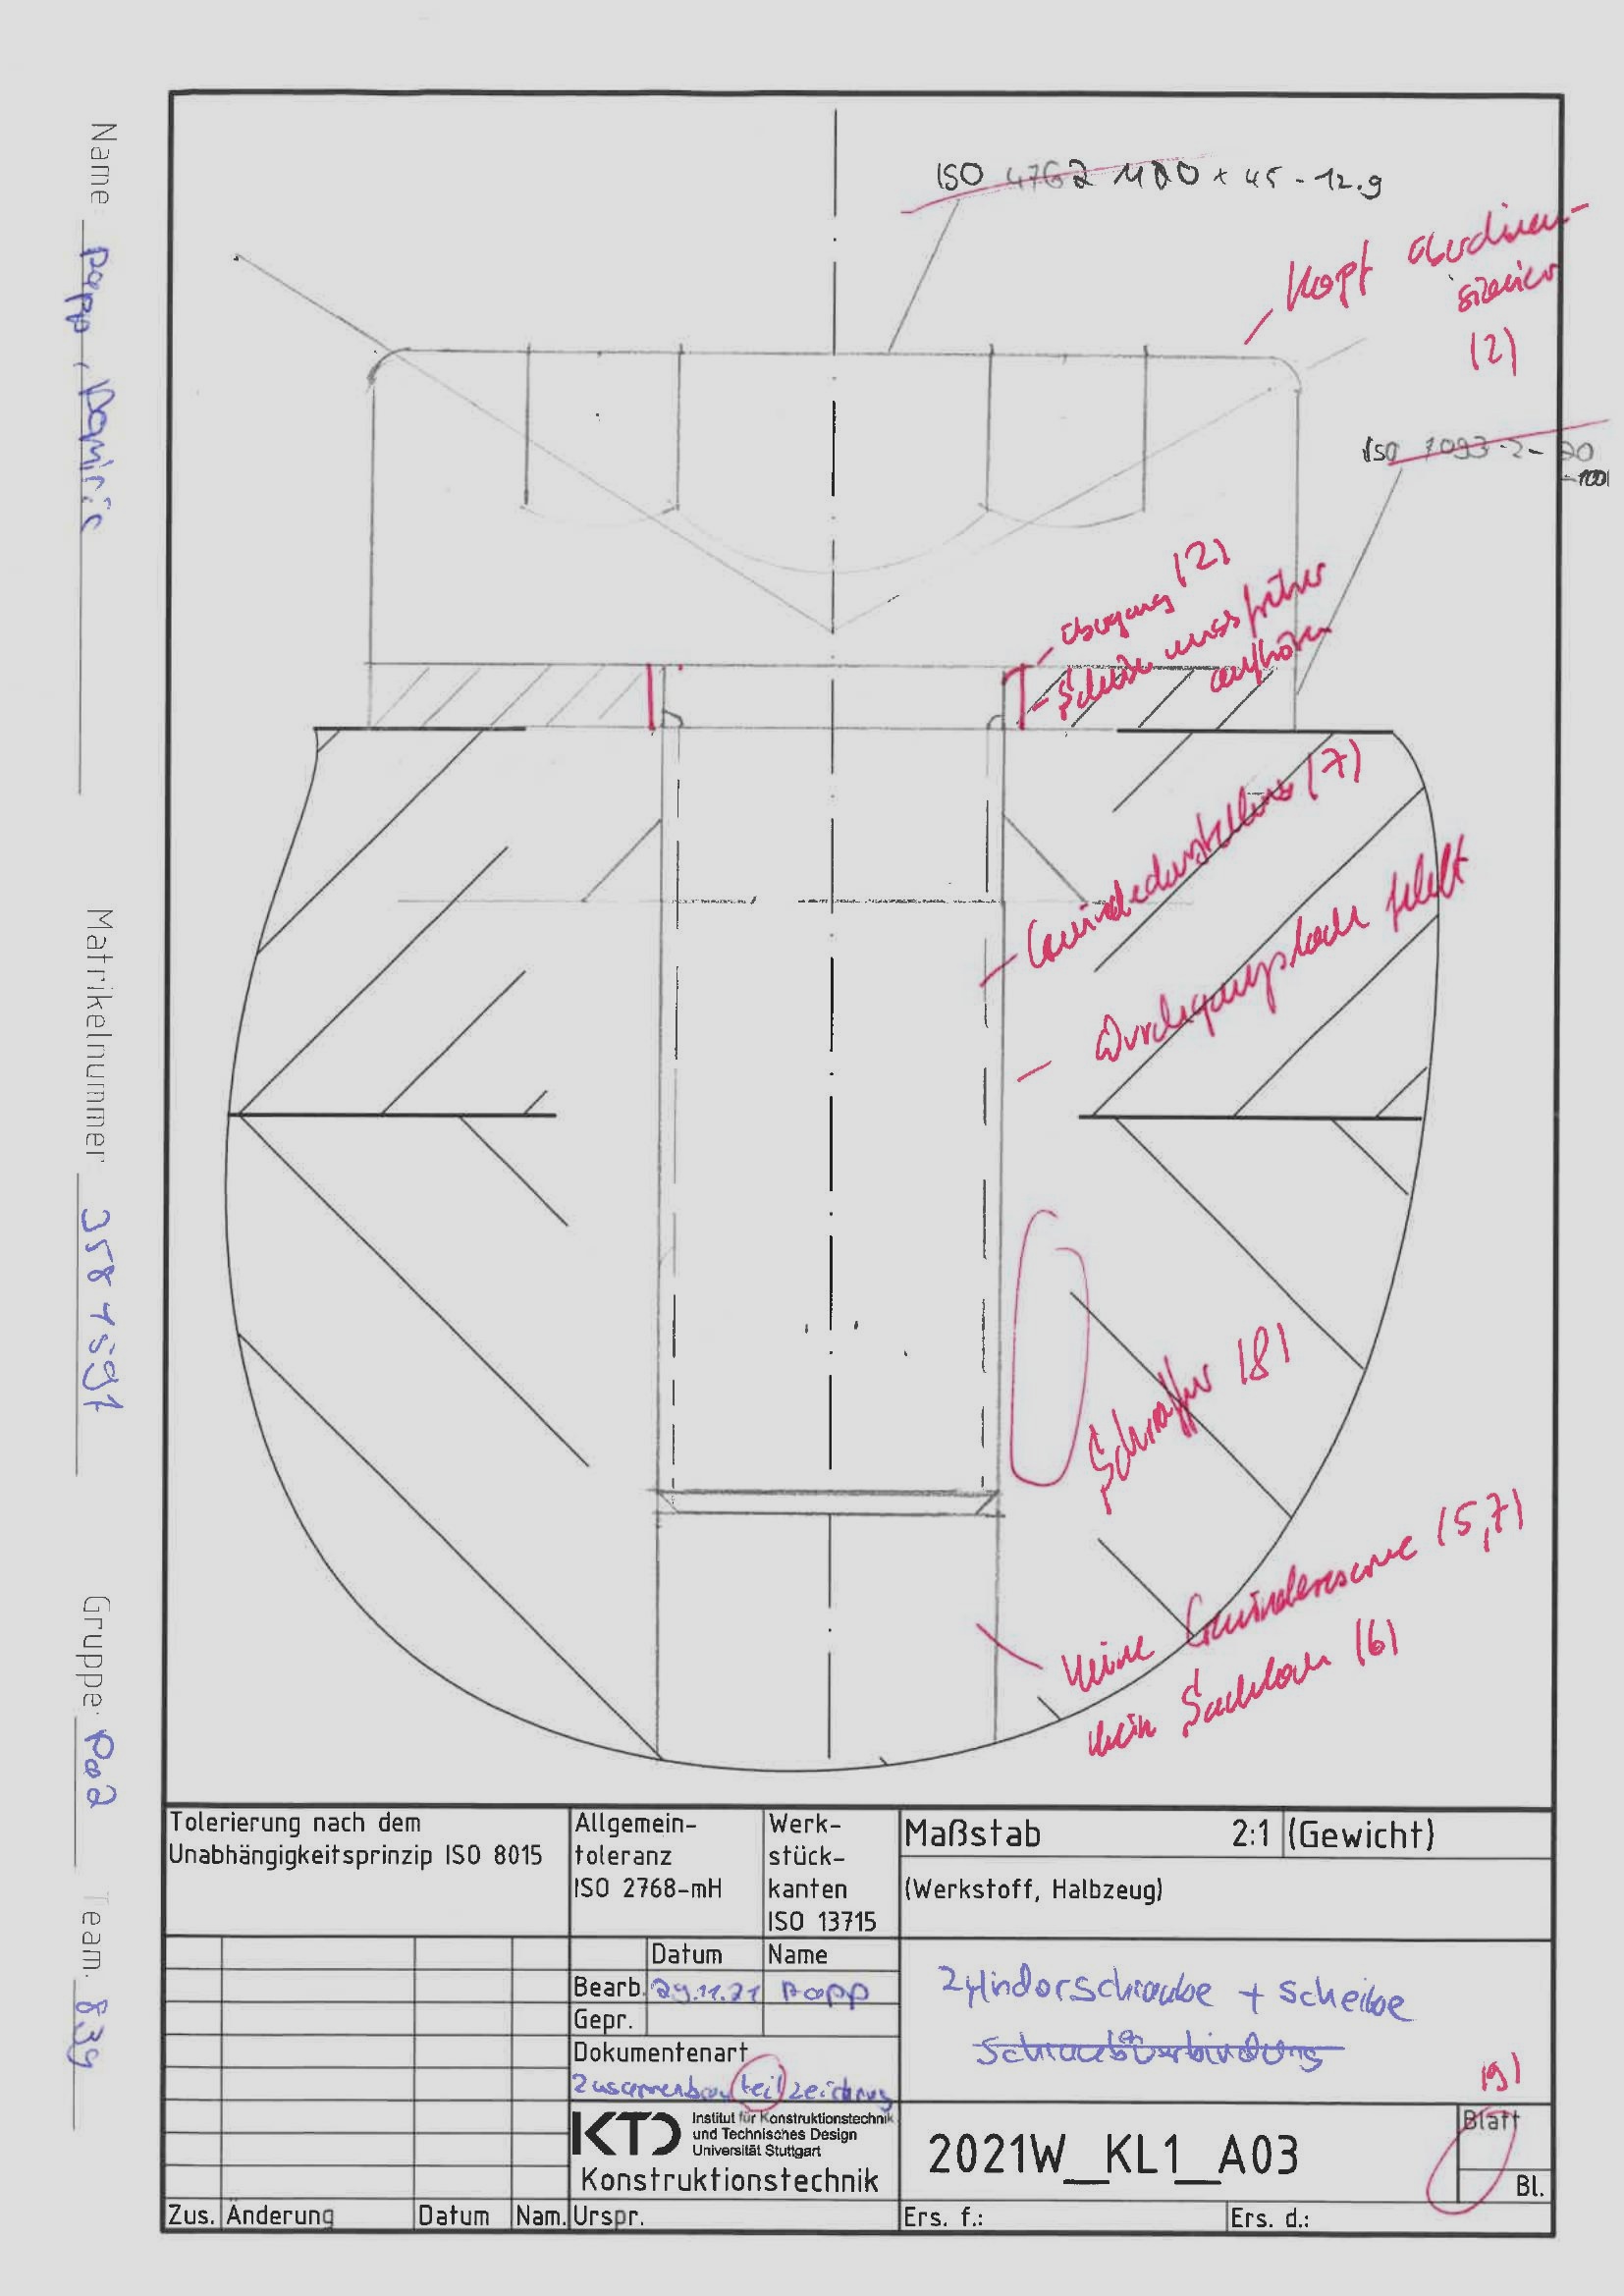 Name: Papp, Dominic
Matrikelnummer
Gruppe: P02
Team: 839
ISO 4762 M20 x 45 - 12.9
Kopf überdimen-
sioniert
(2)
ISO 7093-2- 20
Übergang (2)
- Scheibe muss früher
aufhören
- Gewindedarstellung (7)
- Durchgangsloch fehlt
Schraffur (8)
keine Gewindereserve (5,7)
kein Sackloch (6)
Tolerierung nach dem
Unabhängigkeitsprinzip ISO 8015
Allgemein-
toleranz
ISO 2768-mH
Werk-
stück-
kanten
ISO 13715
Maßstab 2:1 (Gewicht)
(Werkstoff, Halbzeug)
Datum Name
Bearb. 29.11.21 Papp
Gepr.
Dokumentenart
Zusammenbauteilzeichnung
Zylinderschraube + Scheibe
Schraubverbindung
(9)
KTD Institut für Konstruktionstechnik
und Technisches Design
Universität Stuttgart
Konstruktionstechnik
2021W_KL1_A03
Blatt
Bl.
Zus. Änderung Datum Nam. Urspr. Ers. f.: Ers. d.: